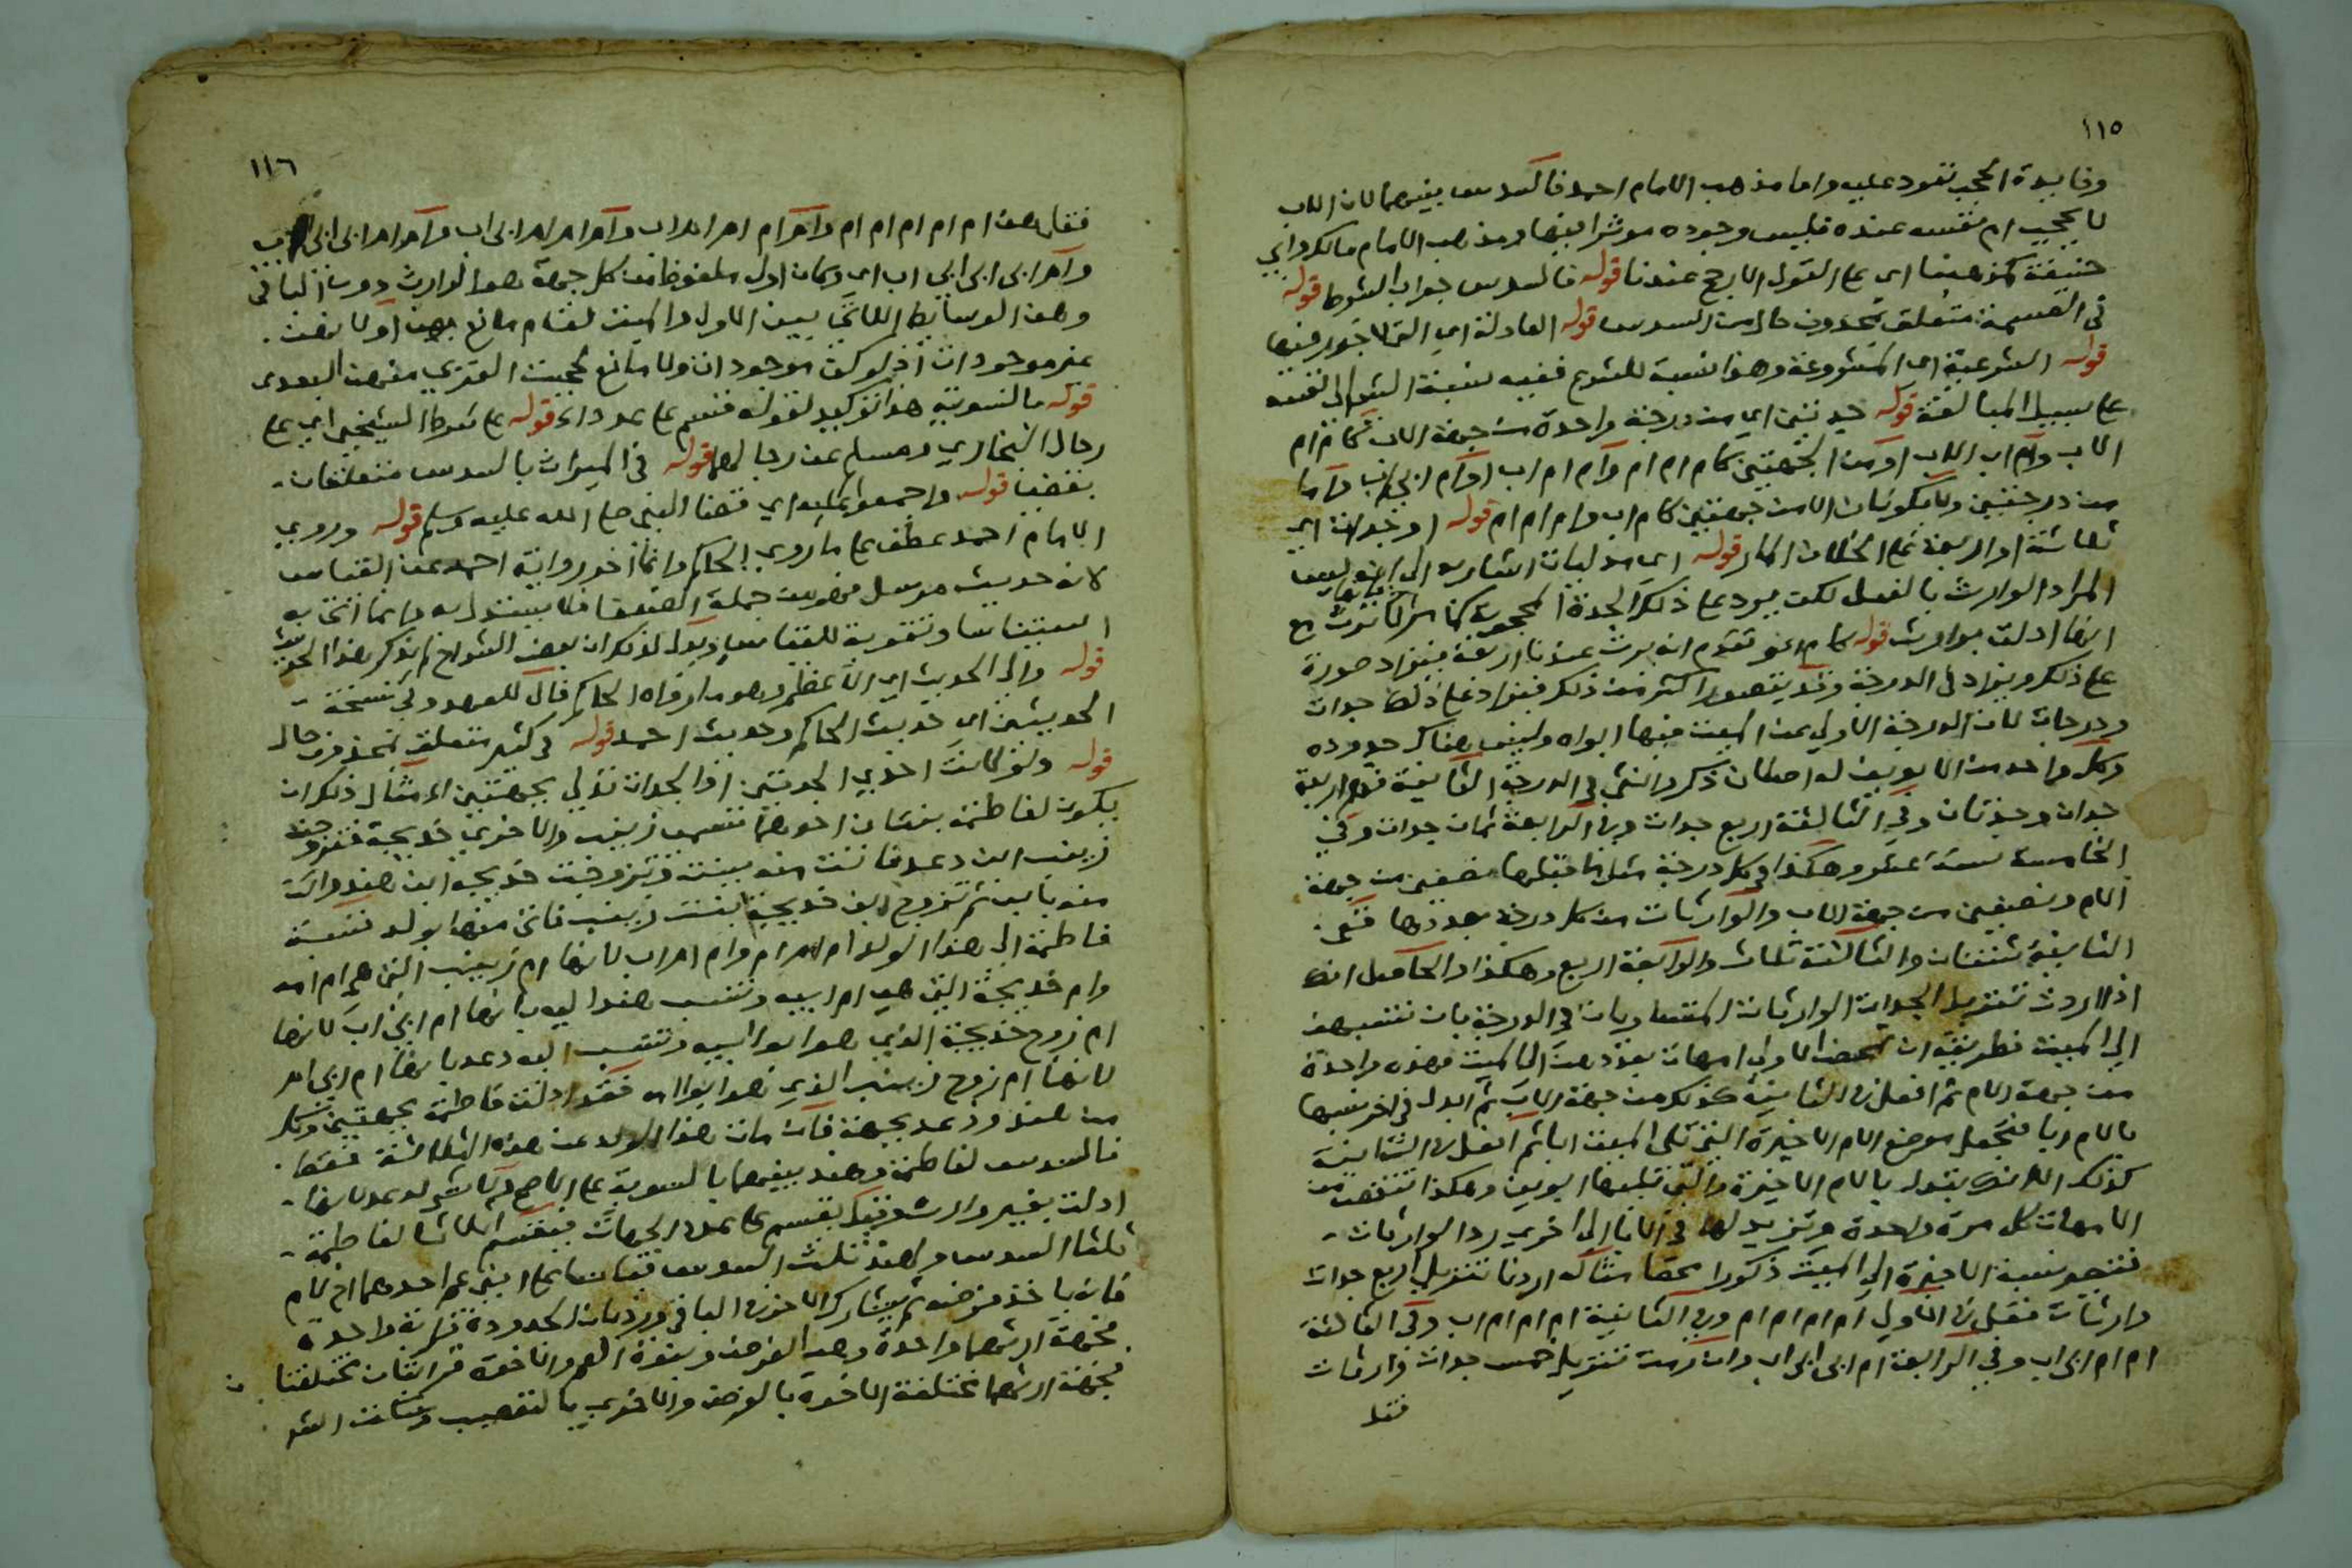 ١١٥
وفايدة الحجب تعود عليه واما مذهب الامام احمد فالسدس بينهما لان الاب
لا يحجب ام نفسه عنده فليس وجوده مؤثرا فيها ومذهب الامام مالك وابي
حنيفة كمذهبنا اي على القول الارجح عندنا قوله فالسدس جواب الشرط قوله
في القسمة متعلق بمحذوف حال من السدس قوله العادلة اي التي لا جور فيها
قوله الشرعية اي المشروعة وهذا نسبة للشرع ففيه نسبة الشي الى نفسه
على سبيل المبالغة قوله جدتين اي من درجة واحدة من جهة الاب كام ام
الاب وام اب الاب او من الجهتين كام ام ام وام ام اب او ام ابي اب واما
من درجتين ولا يكونان الا من جهتين كام اب وام ام ام قوله او جدات اي
ثلاثة او اربعة على الخلاف المار قوله
المراد الوارث بالفعل لكن يرد على ذلك الجدة المحجوبة
انها ادلت بوارث قوله كما تقدم انه يرث عندنا اربعة فيزاد صورة
على ذلك ويزاد في الدرجة وقد يتصور اكثر من ذلك فيزاد على ذلك جدات
ودرجات لان الدرجة الاولى عن الميت فيها ابواه وليس هناك جدوده
وكل واحد من الابوين له اصلان ذكر وانثى في الدرجة الثانية فهم اربعة
جدان وجدتان وفي الثالثة اربع جدات وفي الرابعة ثمان جدات وفي
الخامسة ستة عشر وهكذا في كل درجة مثل ما قبلها نصفين من جهة
الام ونصفين من جهة الاب والوارثات من كل درجة بعددها ففي
الثانية ثنتان والثالثة ثلاث والرابعة اربع وهكذا والحاصل انك
اذا اردت تنزيل الجدات الوارثات المتساويات في الدرجة بان تنسبهن
الى الميت فطريقه ان تمحض الاولى امهات بعددهن الى الميت فهذه واحدة
من جهة الام ثم افعل في الثانية كذلك من جهة الاب ثم ابدل في اخر نسبها
بالام ابا فتجعل موضع الام الاخيرة التي تلي الميت ابا ثم افعل في الثانية
كذلك الا انك تبدل بالام الاخيرة والتي تليها ابوين وهكذا تنقص من
الامهات كل مرة واحدة وتزيد لها في الابا الى اخرى رد الوارثات
فتتجرد نسبة الاخيرة الى الميت ذكورا محضا مثاله اردنا تنزيل اربع جدات
وارثات فقل في الاولى ام ام ام ام وفي الثانية ام ام ام اب وفي الثالثة
ام ام ابي اب وفي الرابعة ام ابي ابي اب وان اردت تنزيل خمس جدات وارثات
فقل
١١٦
فقل هن ام ام ام ام ام وام ام ام اب وام ام ابي اب وام ام ابي ابي اب
وام ابي ابي ابي اب اي وكان اول ملفوظ من كل جهة هو الوارث دون الباقي
وهن الوسايط اللاتي بين الاولى والميت لقيام مانع بهن او لا بهن
غير موجودات اذ لو كن موجودات ولا مانع لحجبت القربى منهن البعدى
قوله بالسوية هو توكيد لقوله فتقسم على عدد قوله على شرط الشيخين اي على
رجال البخاري ومسلم عن رجالهما قوله في الميراث بالسدس متعلقان
بقضى قوله واجمعوا عليه اي قضا النبي صلى الله عليه وسلم قوله وروى
الامام احمد عطف على ما روى الحاكم وانما اخر رواية احمد عن القياس
لانه حديث مرسل فهو من جملة الضعفا فلا يستدل به وانما اتى به
استيناسا وتقوية للقياس ويدل لذلك ان بعض الشراح لم يذكر هذا الحديث
قوله والى الحديث اي الاعظم وهو ما رواه الحاكم فال للعهد وفي نسخة
الحديثين اي حديث الحاكم وحديث احمد قوله في كثير متعلق بمحذوف حال
قوله ولو كانت احدى الجدتين او الجدات تدلي بجهتين الى مثال ذلك ان
يكون لفاطمة بنتان احدهما تسمى زينب والاخرى خديجة فتزوجت
زينب ابن دعد فاتت منه ببنت وتزوجت خديجة ابن هند واتت
منه بابن ثم تزوج ابن خديجة بنت زينب فاتى منها بولد فنسبة
فاطمة الى هذا الولد ام ام ام وام ام اب لانها ام زينب التي هي ام امه
وام خديجة التي هي ام ابيه وتنسب هند اليه بانها ام ابي اب لانها
ام زوج خديجة الذي هو ابو ابيه وتنسب اليه دعد بانها ام ابي ام
لانها ام زوج زينب الذي هو ابو امه فقد ادلت فاطمة بجهتين وكل
من هند ودعد بجهة فان مات هذا الولد عن هذه الثلاثة فقط
فالسدس لفاطمة وهند بينهما بالسوية على الاصح ولا شي لدعد لانها
ادلت بغير وارث وقيل يقسم على عدد الجهات فيقسم اثلاثا لفاطمة
ثلثا السدس ولهند ثلث السدس قياسا على ابني عم احدهما اخ لام
فانه ياخذ فرضه ثم يشارك الاخر في الباقي ورد بان الجدودة قرابة واحدة
فجهة ارثهما واحدة وهو الفرض وبنوة العم والاخوة قرابتان مختلفتان
فجهة ارثهما مختلفة الاخوة بالفرض والاخرى بالتعصيب